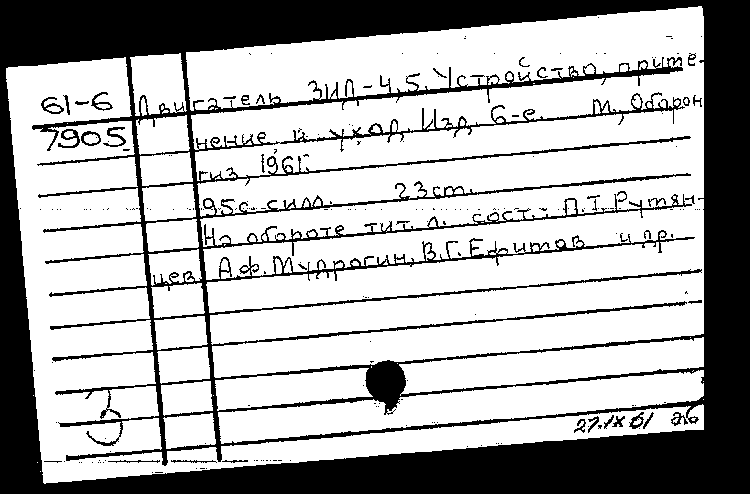 61-6 Двигатель ЗИД-4,5. Устройство, приме-
7905 нение и уход. Изд. 6-е. М., Оборон
гиз, 1961.
95с. с илл. 23 cm.
На обороте тит. л. сост.: П.Т. Румян-
цев, А.Ф. Мудрагин, В.Г. Ефимов и др.
3
27.IX 61